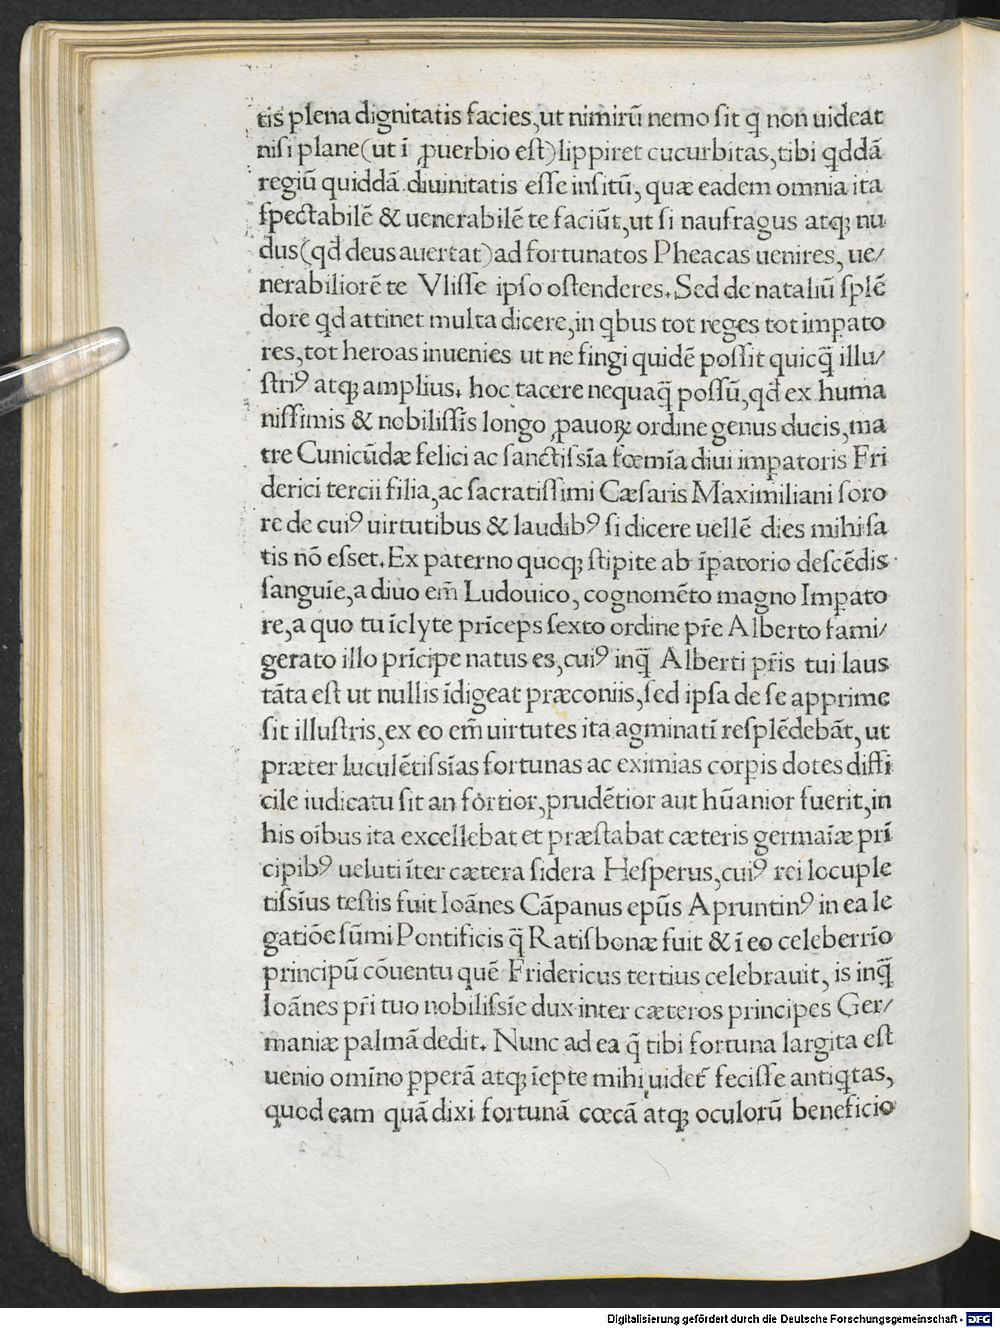 tis plena dignitatis facies,ut nimirū nemo ſit q̄ non uideat
niſi plane(ut ī ꝓuerbio eſt)lippiret cucurbitas,tibi qddā
regiū quiddā diuinitatis eſſe inſitū, quæ eadem omnia ita
ſpectabilē & uenerabilē te faciūt,ut ſi naufragus atqꝫ nu
dus(qd deus auertat)ad fortunatos Pheacas uenires, ue/
nerabiliorē te Vliſſe ipſo oſtenderes. Sed de nataliū ſplē
dore qd attinet multa dicere,in qbus tot reges tot impato
res,tot heroas inuenies ut ne fingi quidē poſſit quicq̄ illu/
ſtriꝰ atqꝫ amplius. hoc tacere nequaq̄ poſſū,qd ex huma
niſſimis & nobiliſſīs longo ꝓauoꝝ ordine genus ducis,ma
tre Cunicūdæ felici ac ſanctiſsīa fœmīa diui impatoris Fri
derici tercii filia,ac ſacratiſſimi Cæſaris Maximiliani ſoro
re de cuiꝰ uirtutibus & laudibꝰ ſi dicere uellē dies mihi ſa
tis nō eſset. Ex paterno quoqꝫ ſtipite ab īpatorio deſcēdis
ſanguīe,a diuo em̄ Ludouico, cognomēto magno Impato
re,a quo tu īclyte prīceps ſexto ordīne pr̄e Alberto fami/
gerato illo prīcipe natus es,cuiꝰ inq̄ Alberti pr̄is tui laus
tāta eſt ut nullis īdigeat præconiis,ſed ipſa de ſe apprime
ſit illuſtris,ex eo em̄ uirtutes ita agminatī reſplēdebāt, ut
præter luculētiſsīas fortunas ac eximias corpis dotes diffi
cile iudicatu ſit an fortior,prudētior aut hūanior fuerit,in
his oībus ita excellebat et præſtabat cæteris germaīæ prī
cipibꝰ ueluti īter cætera ſidera Heſperus,cuiꝰ rei locuple
tiſsīus teſtis fuit Ioānes Cāpanus epūs Apruntinꝰ in ea le
gatiōe ſūmi Pontificis q̄ Ratiſbonæ fuit & ī eo celeberrīo
principū cōuentu quē Fridericus tertius celebrauit, is inq̄
Ioānes pr̄i tuo nobiliſsīe dux inter cæteros principes Ger/
maniæ palmā dedit. Nunc ad ea q̄ tibi fortuna largita eſt
uenio omīno ꝑperā atqꝫ īepte mihi uidet̄ feciſſe antiqtas,
quod eam quā dixi fortunā cœcā atqꝫ oculorū beneficio
Digitalisierung gefördert durch die Deutsche Forschungsgemeinschaft - DFG